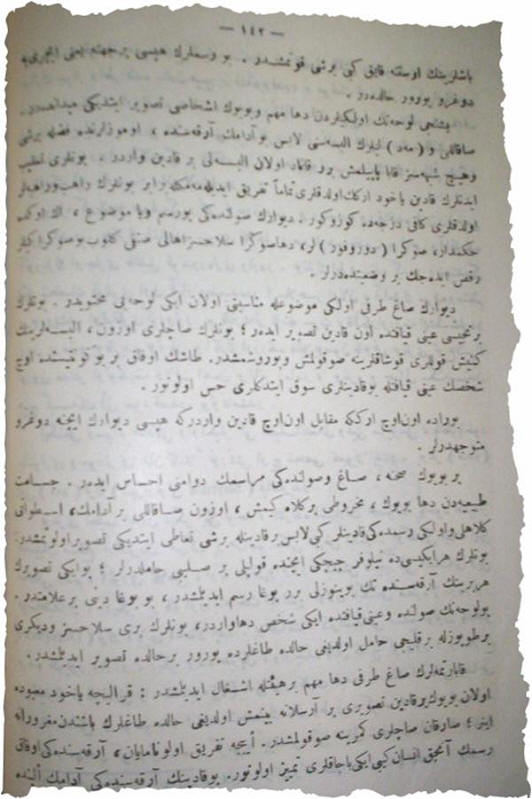 — ١٤٢ —
باشلرینك اوستنه قایق كبی برشی قونمشدر . بو رسملرك هپسی برجهته یعنی ایچری‌یه
دوغرو یورور حالده‌در .
بشنجی لوحه‌نك اولكیلردن دها مهم وبویوك اشخاصی تصویر ایتدیكی میدانده‌در.
صاقاللی و (مه‌د) لیلرك البسه‌سنی لابس بوآدامك آرقه‌سنده ، اوموزلرنده فضله برشی
وهیچ شبهه‌سز قابا یاپیلمش برر قاناد اولان البسه‌لی بر قادین واردر . بونلری تعقیب
ایدنلرك قادین یاخود اركك اولدقلری تماماً تفریق ایدیله‌مه‌مكله برابر بونلرك راهب وراهبه‌لر
اولدقلری كافی درجه‌ده كوزوكور. دیوارك صولنده‌كی بورسم ویا موضوع ، اك اوكده
حكمدار، صوكرا (دوروفور) لر، دهاصوكرا سلاحسز اهالی صنفی كلوب بوصوكرا كیلر
رقص ایده‌جك بر وضعیتده‌درلر .
دیوارك صاغ طرفی اولكی موضوعله مناسبتی اولان ایكی لوحه‌یی محتویدر . بونلرك
برنجیسی عینی قیافتده اون قادین تصویر ایدر ؛ بونلرك صاچلری اوزون، البسه‌لرینك
كنیش قوللری قوشاقلرینه صوقولمش وبوروشمشدر. طاشك اوفاق بر بوكونتیسنده اوچ
شخصك عینی قیافتله بوقادینلری سوق ایتدكلری حس اولونور .
بوراده اون‌اوچ ارككه مقابل اون‌اوچ قادین واردركه هپسی دیوارك ایچنه دوغرو
متوجهدرلر .
بر بویوك صحنه ، صاغ وصولنده‌كی مراسمك دوامنی احساس ایدر . جسامت
طبیعیه‌دن دها بویوك ، مخروطی بركلاه كیمش ، اوزون صاقاللی بر آدامك، اسطوانی
كلاهلی واولكی رسمده‌كی قادینلر كبی لابس بر قادینله برشی تعاطی ایتدیكی تصویر اولونمشدر.
بونلرك هرایكیسی‌ده نیلوفر چیچكی ایچنده قولپلی بر صلیبی حاملدرلر ؛ بوایكی تصویرك
هربرینك آرقه‌سنده تك بوینوزلی برر بوغا رسم ایدیلمشدر ، بو بوغا دینی برعلامتدر.
بولوحه‌نك صولنده وعینی قیافتده ایكی شخص دهاواردر، بونلرك بری سلاحسز ودیكری
برطوپوزله برقلیجی حامل اولدیغی حالده طاغلرده یورور برحالده تصویر ایدیلمشدر .
قابارتمه‌لرك صاغ طرفی دها مهم برهیئتله اشغال ایدیلمشدر : قرالیچه یاخود معبوده
اولان بویوك برقادین تصویری بر آرسلانه بینمش اولدیغی حالده طاغلرك باشندن مغرورانه
اینر ؛ صارقان صاچلری كمرینه صوقولمشدر. ایجه تفریق اولونامایان، آرقه‌سنده‌كی اوفاق
رسمك آنجق انسان كبی ایكی باجاقلری تمیز اولونور. بوقادینك آرقه‌سنده‌كی آدامك ألنده